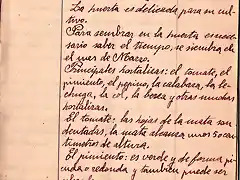 La huerta es delicada para su cul-
tivo.
Para sembrar en la huerta es nece-
sario saber el tiempo, se siembra en
el mes de Marzo.
Principales hortalizas: el tomate, el
pimiento, el pepino, la calabaza, la le-
chuga, la col, la berza y otras muchas
hortalizas.
El tomate: las hojas de la mata son
dentadas, la mata alcanza unos 50 cen-
tímetros de altura.
El pimiento: es verde y de forma
redonda y también puede ser